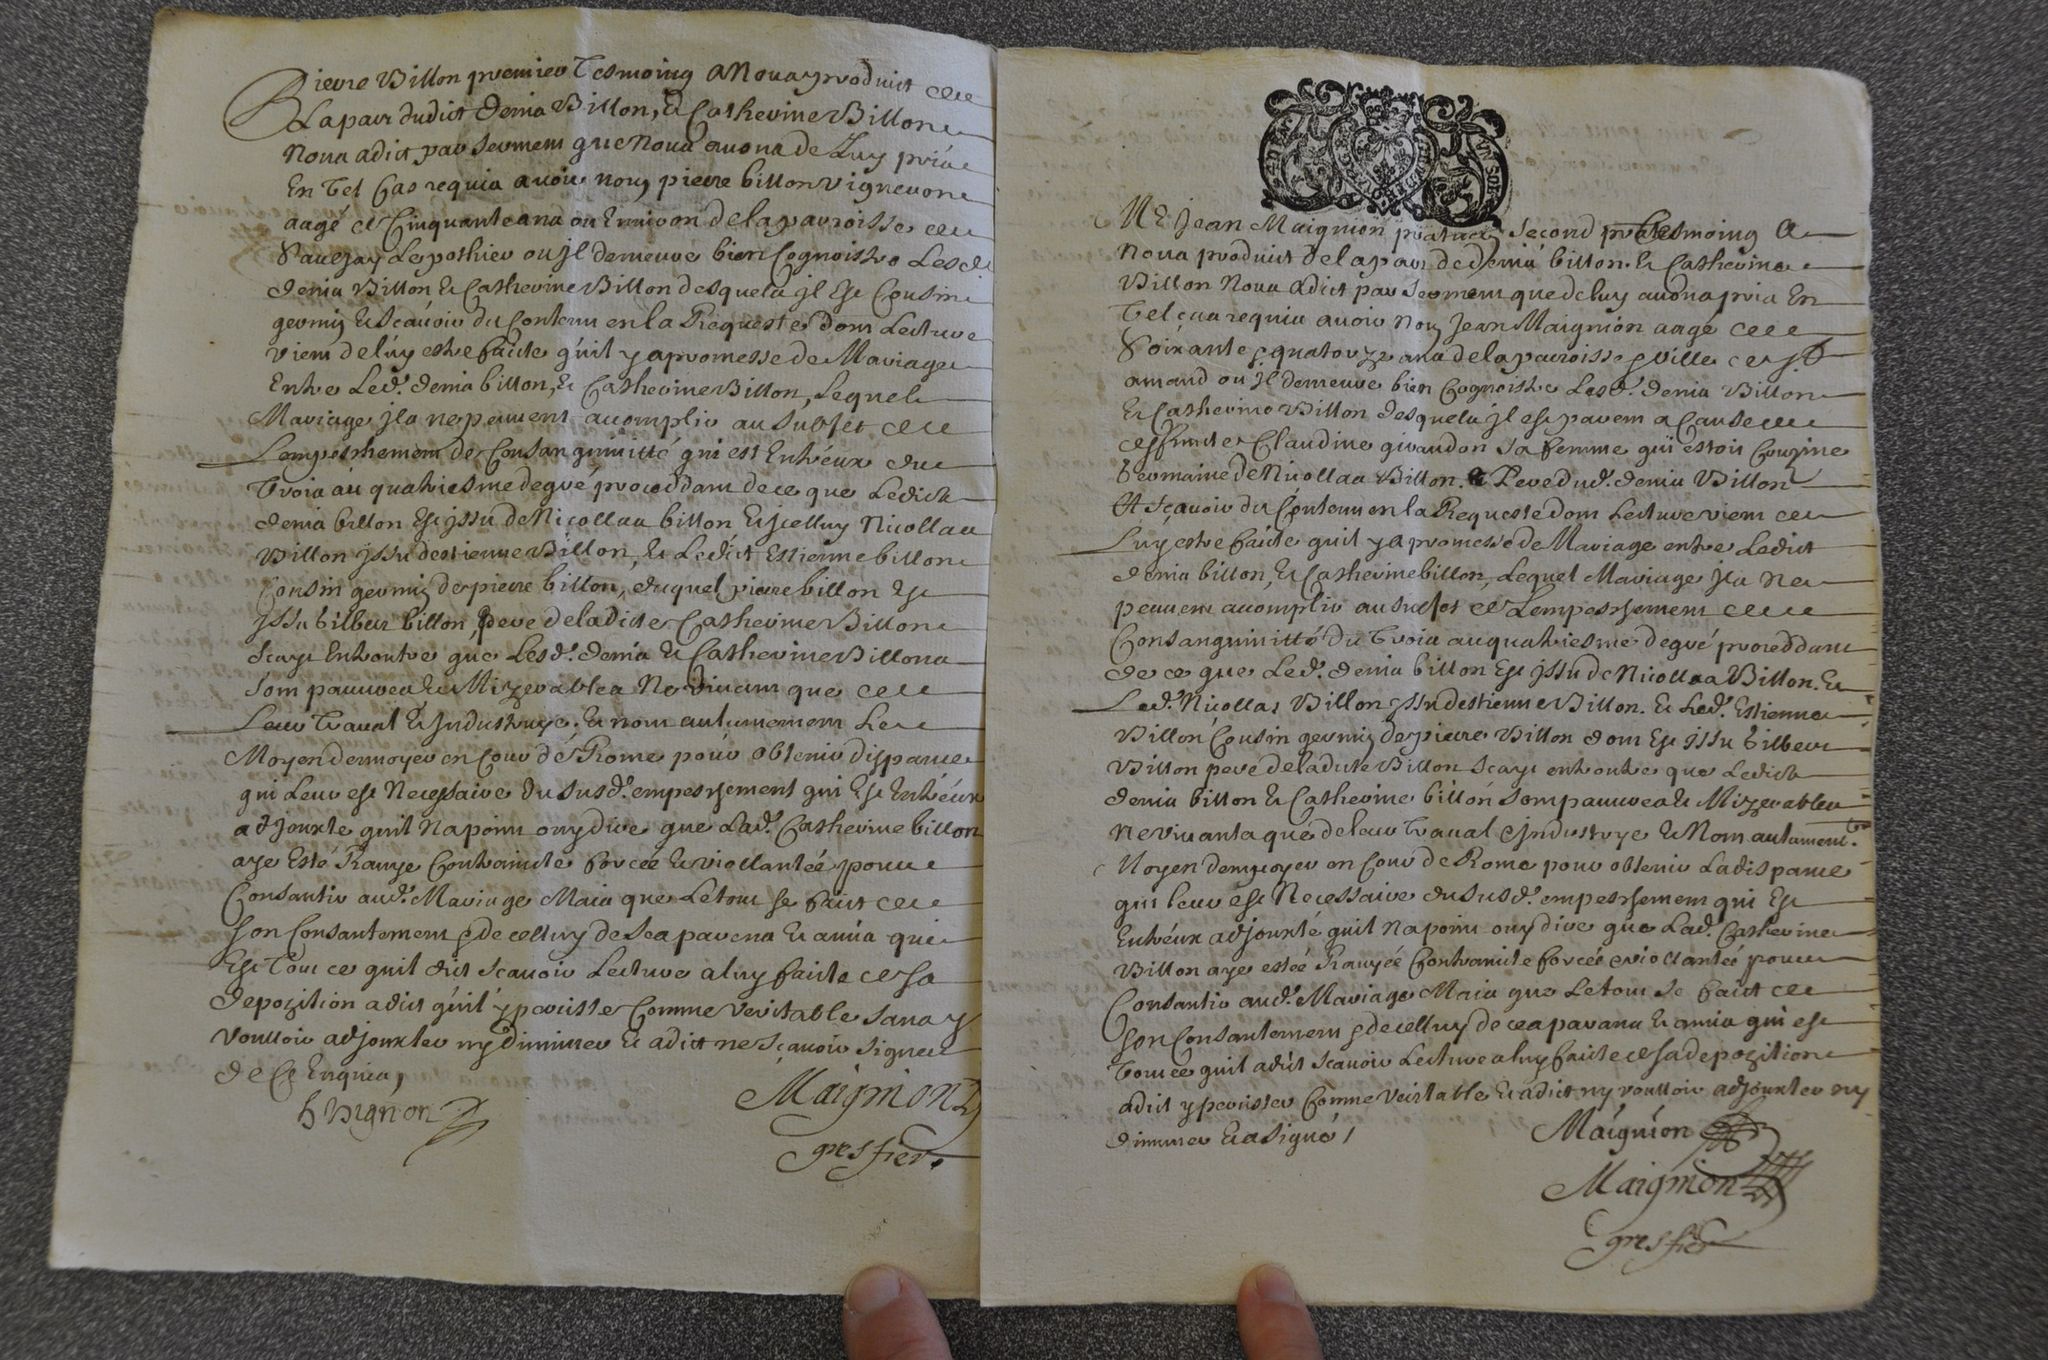 Pierre Billon premier tesmoing a Nous produict de
La part dudict Denis Billon, et Catherine Billon
Nous a dict par serment que Nous avons de luy pris
En tel cas requis avoir nom pierre billon vigneron
aagé de Cinquante ans ou Environ de la parroisse de
Saulzay Le pothier ou il demeure bien Cognoistre Lesd.
denis Billon et Catherine Billon desquels il Est Cousin
germin et Scavoir du Contenu en la Requeste dont Lecture
vient de luy estre faicte qu'il y a promesse de Mariage
Entre Led. denis billon, et Catherine Billon, Lequel
Mariage ils ne peuvent accomplir au subjet de
Lempeschement de Consanguinitté qui est Entreux du
trois au quatriesme degré proceddant de ce que Ledict
denis billon Est issu de Nicollas billon et icelluy Nicollas
Billon issu destienne Billon, et Ledict Estienne billon
Cousin germin de pierre billon, duquel pierre billon Est
issu Gilbert billon, pere de ladicte Catherine Billon
Scayt Entroutre que Lesd. denis et Catherine Billons
sont pauvres et Mizerables Ne vivant que de
Leur travail et Industrye, et n'ont autrement Le
Moyen denvoyer en Cour de Rome pour obtenir dispance
qui Leur est Necessaire du susd. empeschement qui Est Entreux
adjouxte quil Na point ouy dire que Lad. Catherine billon
aye Esté Ravye Contraincte forcee et viollantée pour
Consantir aud. Mariage Mais que Le tout se faict de
son Consantement & de celluy de ses parens et amis qui
Est tout ce quil dict scavoir Lecture a luy faicte de sa
depozition a dict qu'il y percister Comme veritable sans y
voulloir adjouxter ny diminuer et a dict ne scavoir signer
de Ce Enquis,
Maignion
greffier
Me Jean Maignion second tesmoing a
Nous produict de la part de denis billon et Catherine
Billon Nous a dict par serment que de luy avons pris En
tel cas requis avoir Nom Jean Maignion aagé de
Soixante & quatorze ans de la parroisse & ville de St
amand ou il demeure bien Cognoistre Lesd. denis Billon
et Catherine Billon desquels il est parent a Cause de
deffuncte Claudine giraudon sa femme qui estoit Couzine
Germaine de Nicollas Billon. Pere dud. denis Billon
Et scavoir du Contenu en la Requeste dont Lecture vient de
Luy estre faicte quil y a promesse de Mariage entre Ledict
denis billon, et Catherine billon, Lequel Mariage ils Ne
peuvent accomplir au subjet de Lempeschement de
Consanguinitté du trois au quatriesme degré proceddant
de ce que Led. denis billon Est issu de Nicollas Billon. et
Led. Nicollas Billon issu destienne Billon. et Led. Estienne
Billon Cousin germin de pierre Billon dont Est issu Gilbert
Billon pere de ladicte Billon scayt entroutre que Ledict
denis billon et Catherine billon sont pauvres et Mizerables
Ne vivants que de leur travail & industrye et Nont autrement le
Moyen denvoyer en Cour de Rome pour obtenir La dispance
qui leur est Necessaire du susd. empeschement qui Est
Entreux adjouxté quil Na point ouy dire que Lad. Catherine
Billon aye estéé Ravyée Contraincte forcée & viollantéé pour
Consantir aud. Mariage Mais que Le tout se faict de
son Consantement & de celluy de ces parans et amis qui est
tout ce quil a dict scavoir Lecture a luy faicte de sa depozition
a dict y percister Comme veritable et a dict ny voulloir adjouxter ny
diminuer et a signé /
Maignion
Maignion
greffier